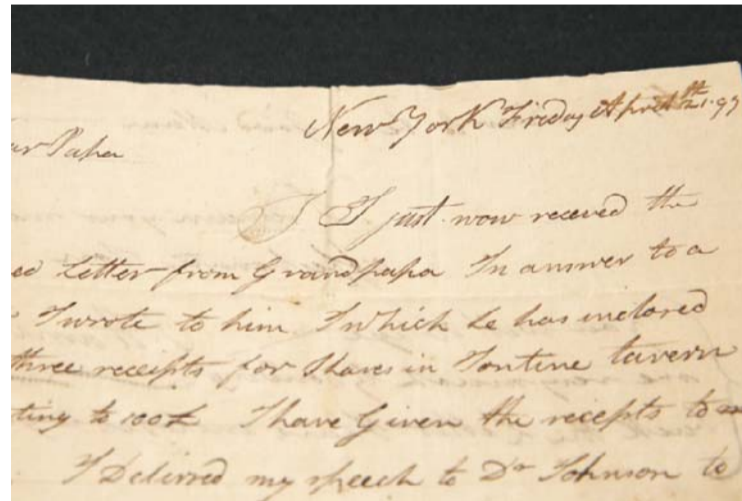 New York Friday April 21th 97
ar Papa
I I just now receved the
ed Letter from Grandpapa In answer to a
I wrote to him In Which he has inclosed
three receipts for Shares in Tontine tavern
ting to 100£ I have Given the recepts to m
I Delivred my speech to Dr Johnson to